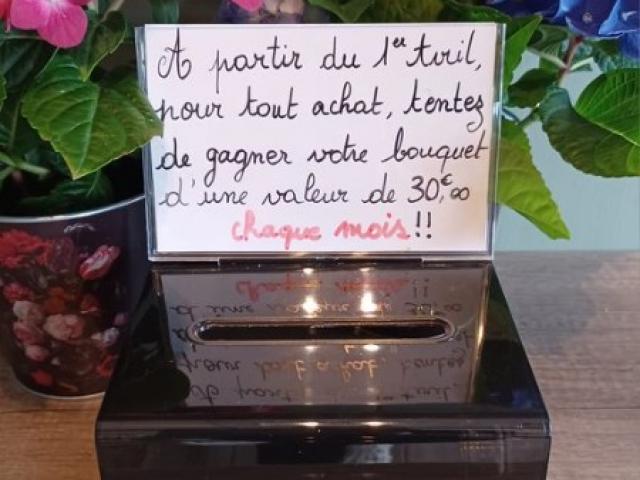 A partir du 1er Avril,
pour tout achat, tentez
de gagner votre bouquet
d'une valeur de 30,€00
chaque mois!!